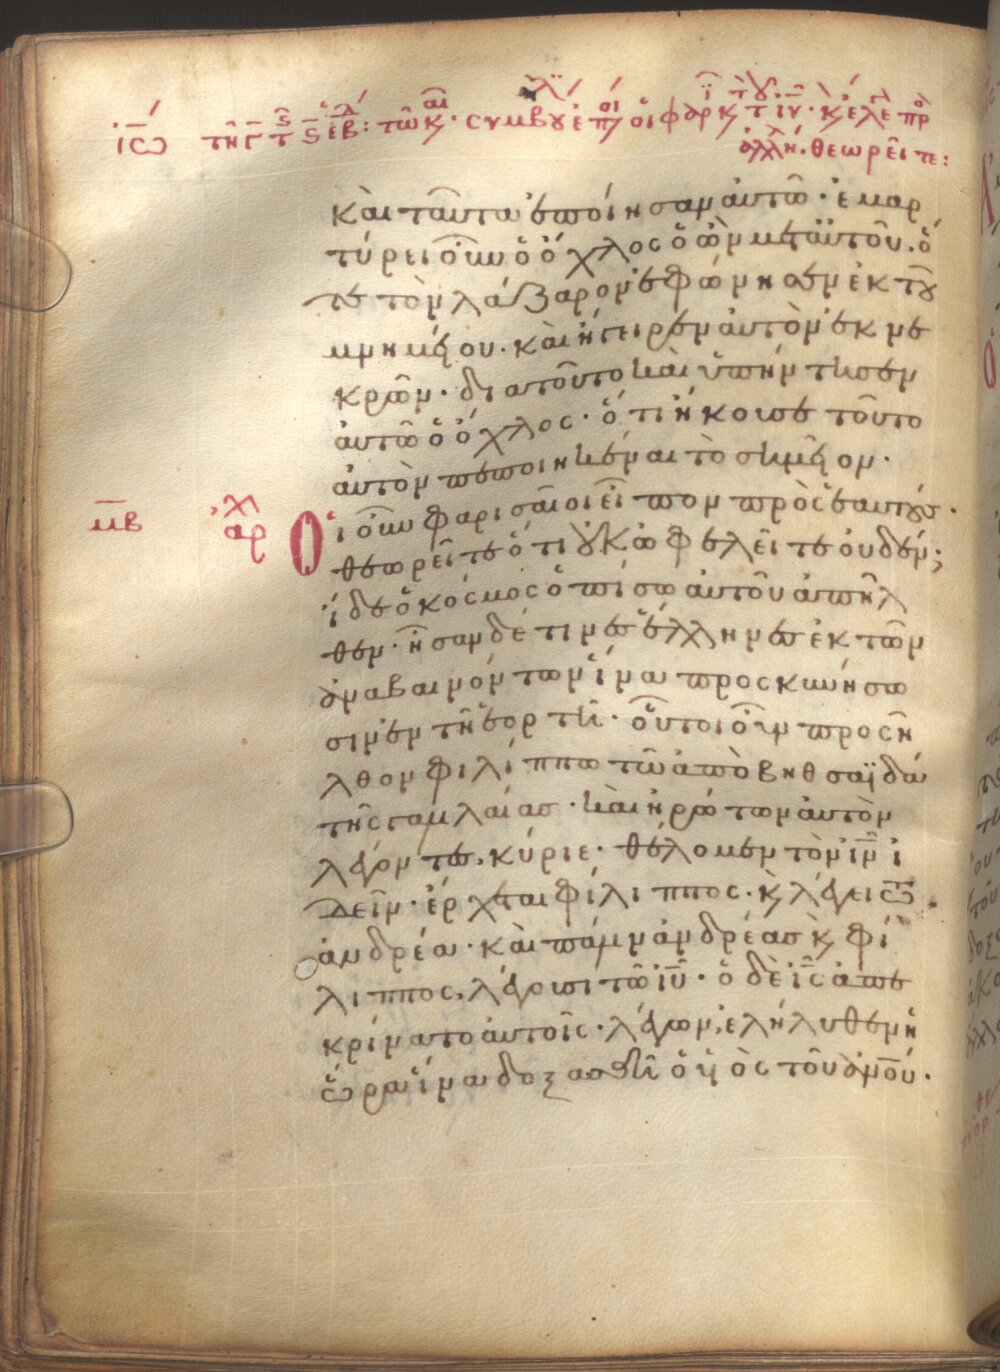 καὶ ταῦτα ἐποίησαν αὐτῶ· ἐμαρ
τύρει οὖν ὁ ὄχλος ὁ ὢν μετ αὐτοῦ. ὅ
τε τὸν λάζαρον ἐφώνησεν ἐκ τοῦ
μνημείου. καὶ ἤγειρεν αὐτὸν ἐκ νε
κρῶν· διατοῦτο καὶ ὑπήντησεν
αὐτῶ ὁ ὄχλος· ὅτι ἤκουσε τοῦτο
αὐτὸν πεποιηκέναι τὸ σημεῖον·
μβ
Οἱ οὖν φαρισαῖοι εἶπον πρὸς ἑαυτούς·
θεωρεῖτε ὅτι οὐκ ὠφελεῖτε οὐδέν;
ἴδε ὁ κόσμος ὀπίσω αὐτοῦ ἀπῆλ
θεν· ἦσαν δέ τινες ἕλληνες ἐκ τῶν
ἀναβαινόντων ἵνα προσκυνήσω
σιν ἐν τῆ ἑορτῆ· οὗτοι οὖν προσῆ
λθον φιλίππω τῶ ἀπὸ βηθσαϊδὰ
τῆς γαλιλαίας· καὶ ἠρώτων αὐτὸν
λέγοντες. κύριε· θέλομεν τὸν ιν ἰ
δεῖν· ἔρχεται φίλιππος. κ λέγει τῶ
ἀνδρέα· καὶ πάλιν ἀνδρέας κ φί
λιππος. λέγουσι τῶ ιυ· ὁ δὲ ις ἀπε
κρίνατο αὐτοῖς· λέγων, ἐλήλυθεν ἡ
ὥρα ἵνα δοξασθῆ ὁ υἱὸς τοῦ ανου·